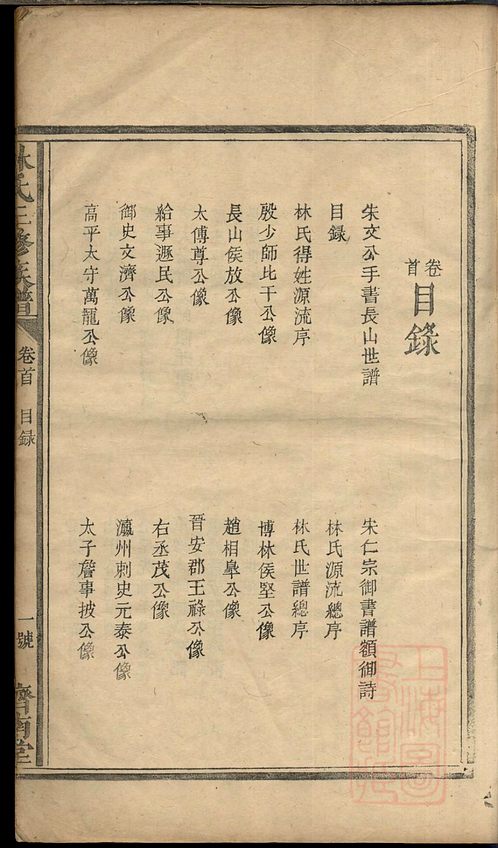 卷首
目錄
朱文公手書長山世譜
宋仁宗御書譜額御詩
目錄
林氏源流總序
林氏得姓源流序
林氏世譜總序
殷少師比干公像
博林侯堅公像
長山侯放公像
趙相皋公像
太傅尊公像
晉安郡王祿公像
給事遯民公像
右丞茂公像
御史文濟公像
瀛州刺史元泰公像
高平太守萬寵公像
太子詹事披公像
林氏三修族譜
卷首 目録
一號
濟南堂
上海圖書館藏